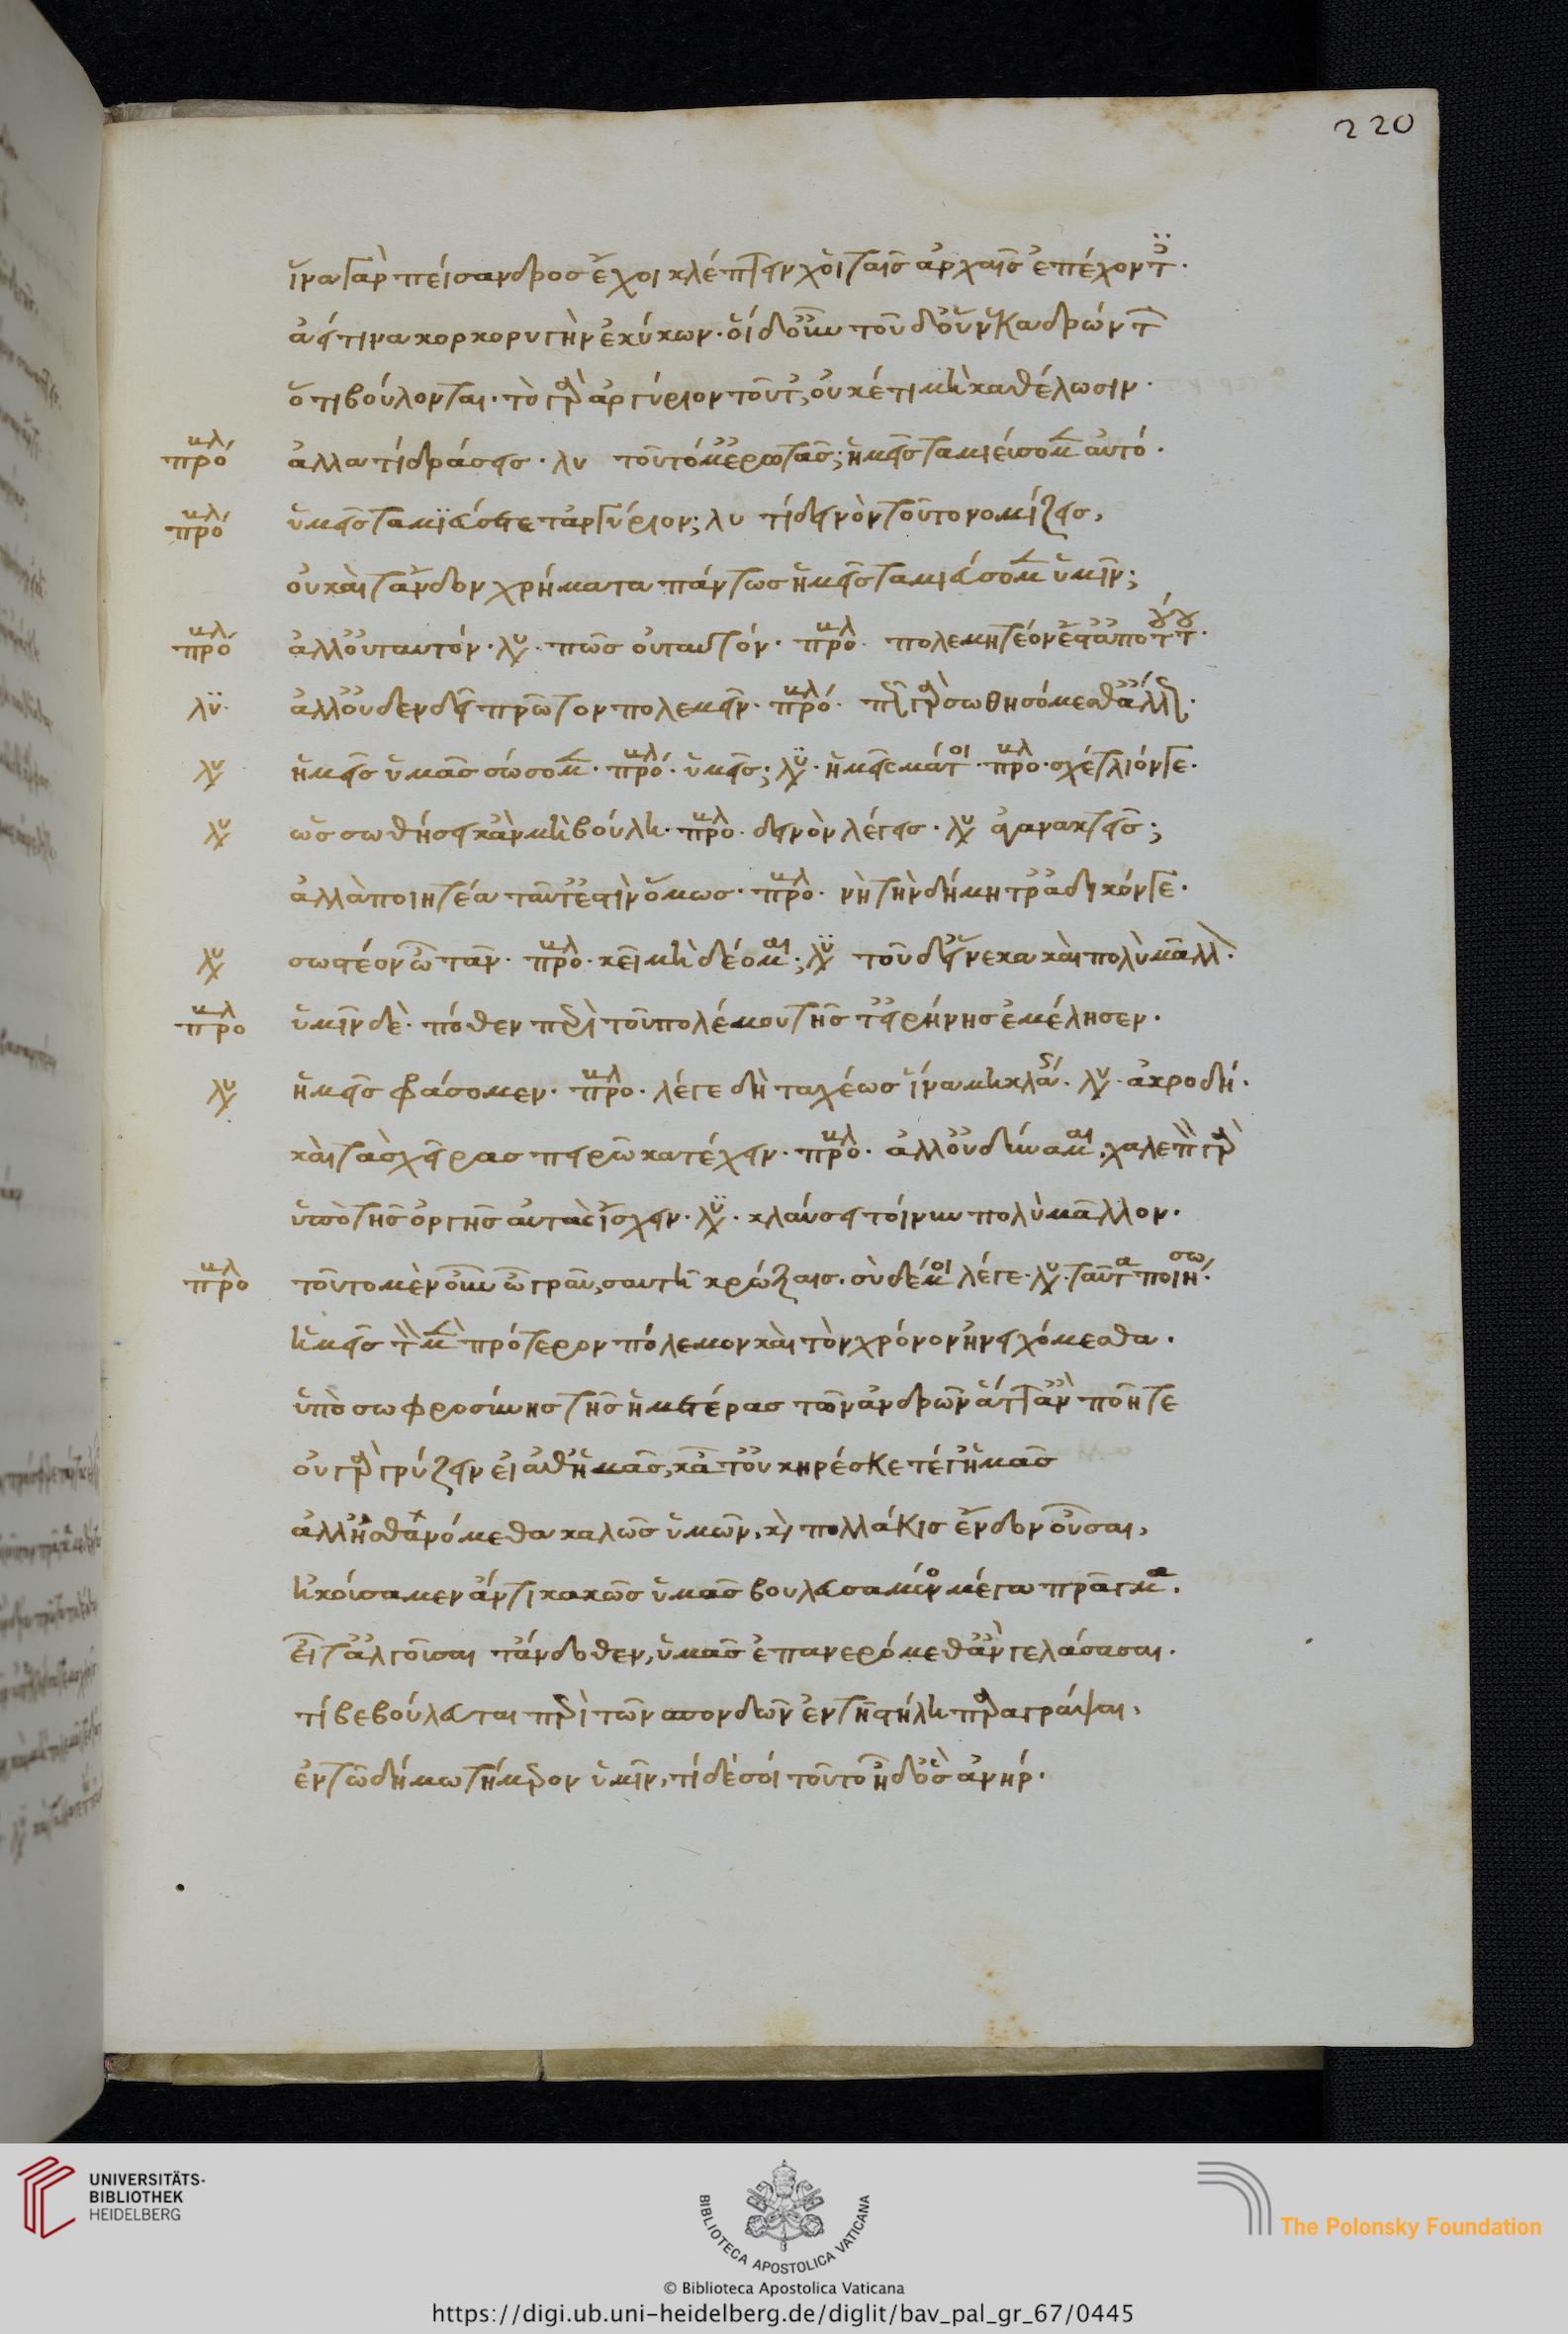 220
ἵνα γὰρ πείσανδρος ἔχοι κλέπτειν χοἱ ταῖς ἀρχαῖς ἐπέχοντες·
ἀεί τινα κορκορυγὴν ἐκύκων· οἱ δ' οὖν τοῦ δ' οὕνεκα δρώντων
ὅτι βούλονται· τὸ γὰρ ἀργύριον τοῦτ', οὐκέτι μὴ καθέλωσιν·
προβουλ ἀλλὰ τί δράσεις· λυ τοῦτό μ' ἐρωτᾶς; ἡμεῖς ταμιεύσομεν αὐτό·
προβουλ ὑμεῖς ταμιεύσετε τἀργύριον; λυ τί δεινὸν τοῦτο νομίζεις,
οὐ καὶ τἄνδον χρήματα πάντως ἡμεῖς ταμιεύσομεν ὑμῖν;
προβουλ ἀλλ' οὐ ταυτόν· λυ· πῶς οὐ ταυτόν· προβουλ· πολεμητέον ἔστ' ἀπὸ τούτου·
λυ· ἀλλ' οὐδὲν δεῖ πρῶτον πολεμεῖν· προβουλ· πῶς γὰρ σωθησόμεσθ' ἄλλως·
λυ ἡμεῖς ὑμᾶς σώσομεν· προβουλ· ὑμεῖς; λυ· ἡμεῖς μέντοι· προβουλ· σχέτλιόν γε·
λυ ὡς σωθήσει κἂν μὴ βούλη· προβουλ· δεινὸν λέγεις· λυ ἀγανακτεῖς;
ἀλλὰ ποιητέα ταῦτ' ἐστὶν ὅμως· προβουλ· νὴ τὴν δήμητρ' ἄδικόν γε·
λυ σωστέον ὦ τᾶν· προβουλ· κεἰ μὴ δέομαι; λυ τοῦδ' εἵνεκα καὶ πολὺ μᾶλλον·
προβουλ ὑμῖν δὲ· πόθεν περὶ τοῦ πολέμου τῆς τ' εἰρήνης ἐμέλησεν·
λυ ἡμεῖς φράσομεν· προβουλ· λέγε δὴ ταχέως ἵνα μὴ κλάῃς· λυ· ἀκροῶ δή·
καὶ τὰς χεῖρας πειρῶ κατέχειν· προβουλ· ἀλλ' οὐ δύναμαι, χαλεπὸν γὰρ
ὑπὸ τῆς ὀργῆς αὐτὰς ἴσχειν· λυ· κλαύσει τοίνυν πολὺ μᾶλλον·
προβουλ τοῦτο μὲν οὖν ὦ γραῦ, σαυτῆ κρώξαις· σὺ δέ μοι λέγε· λυ· ταῦτα ποιήσω·
ἡμεῖς τὸν μὲν πρότερον πόλεμον καὶ τὸν χρόνον ἠνειχόμεσθα·
ὑπὸ σωφροσύνης τῆς ἡμετέρας τῶν ἀνδρῶν ἅττ' ἂν ποῆτε
οὐ γὰρ γρύζειν εἰᾶθ' ἡμᾶς, καί τ' οὐκ ἠρέσκετέ γ' ἡμᾶς
ἀλλ' ᾐσθανόμεθα καλῶς ὑμῶν, καὶ πολλάκις ἔνδον οὖσαι,
ἠκούσαμεν ἄν τι κακῶς ὑμᾶς βουλευσαμένους μέγα πρᾶγμα·
εἶτ' ἀλγοῦσαι τἄνδοθεν, ὑμᾶς ἐπανερόμεθ' ἂν γελάσασαι·
τί βεβούλευται περὶ τῶν σπονδῶν ἐν τῆ στήλη παραγράψαι,
ἐν τῶ δήμω τήμερον ὑμῖν, τί δὲ σοὶ τοῦτο ἦ δ' ὃς ἀνήρ·
UNIVERSITÄTS-
BIBLIOTHEK
HEIDELBERG
BIBLIOTECA APOSTOLICA VATICANA
The Polonsky Foundation
© Biblioteca Apostolica Vaticana
https://digi.ub.uni-heidelberg.de/diglit/bav_pal_gr_67/0445